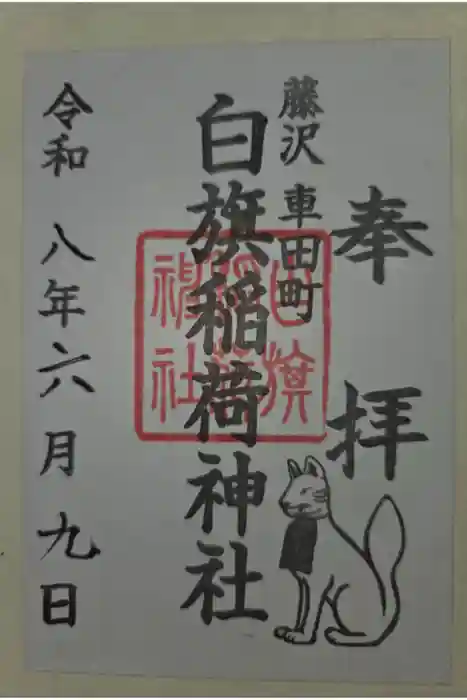 奉拝
藤沢 車田町
白旗稲荷神社
令和 八年六月九日
白旗
稲荷
神社